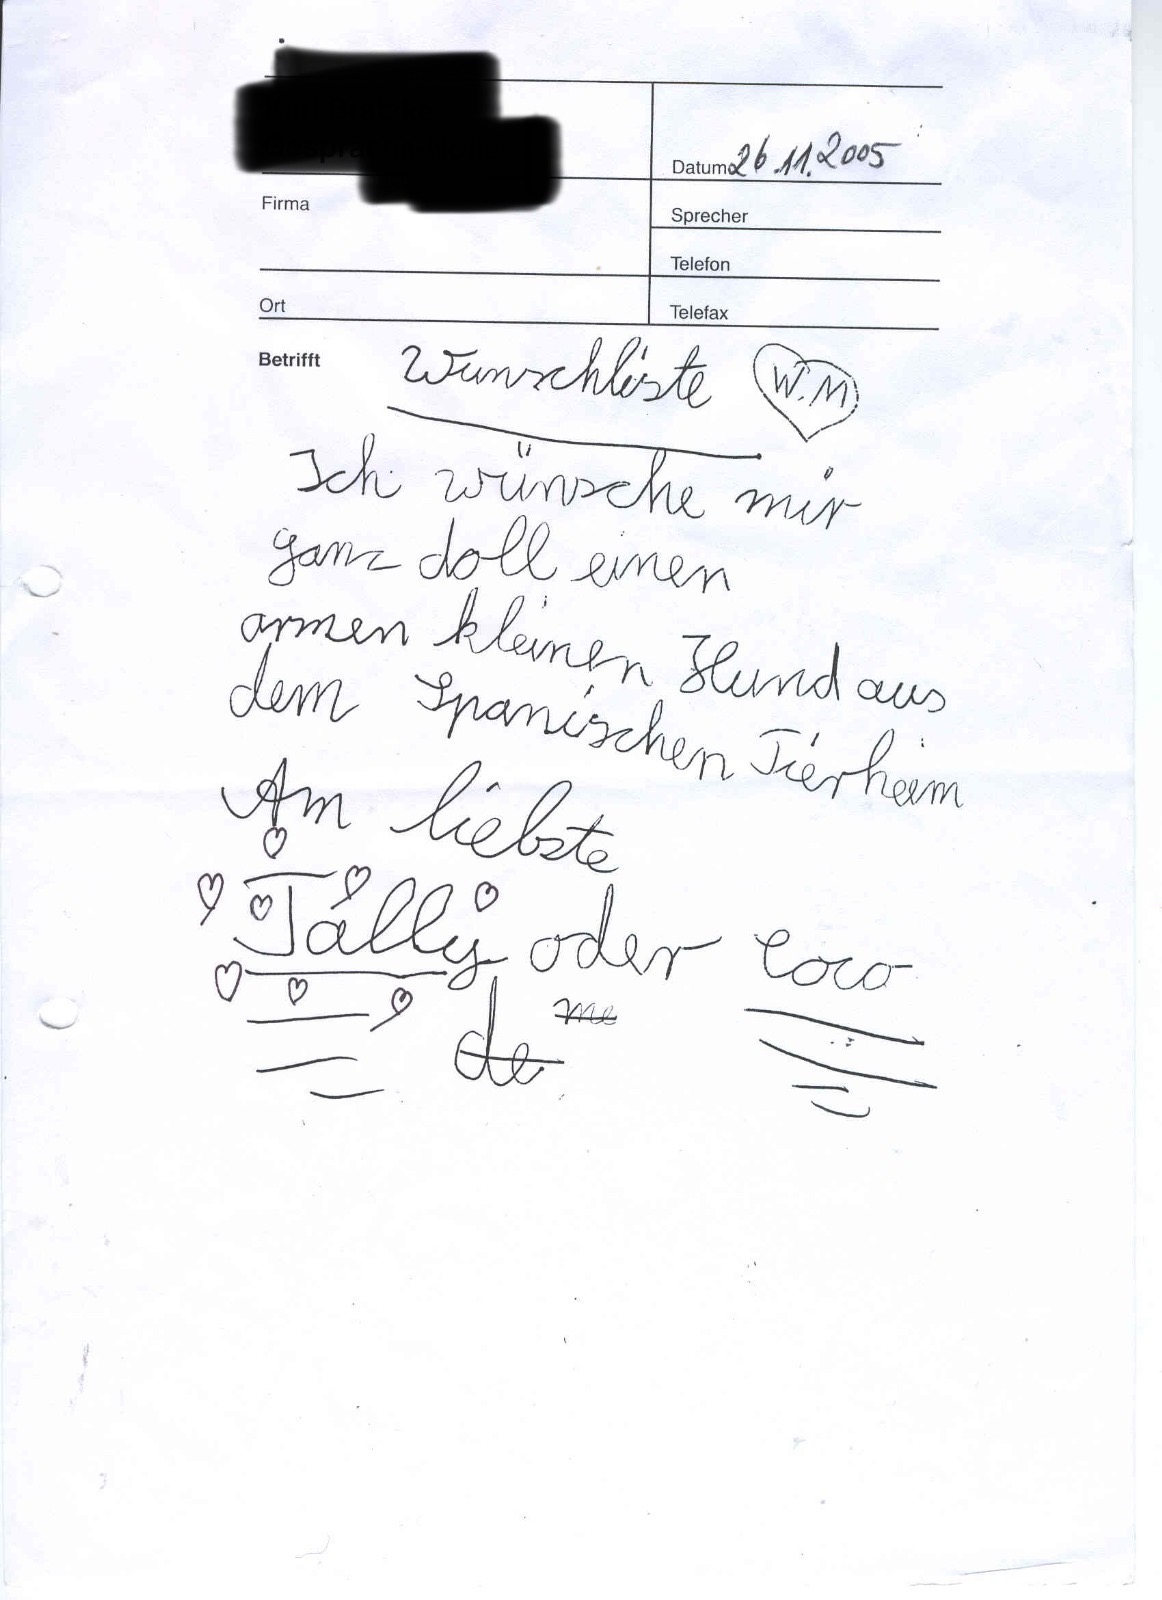 Datum 26.11.2005
Firma
Sprecher
Telefon
Ort
Telefax
Betrifft Wunschliste W.M
Ich wünsche mir
ganz doll einen
armen kleinen Hund aus
dem Spanischen Tierheim
Am liebste
Tally oder Coco
de me